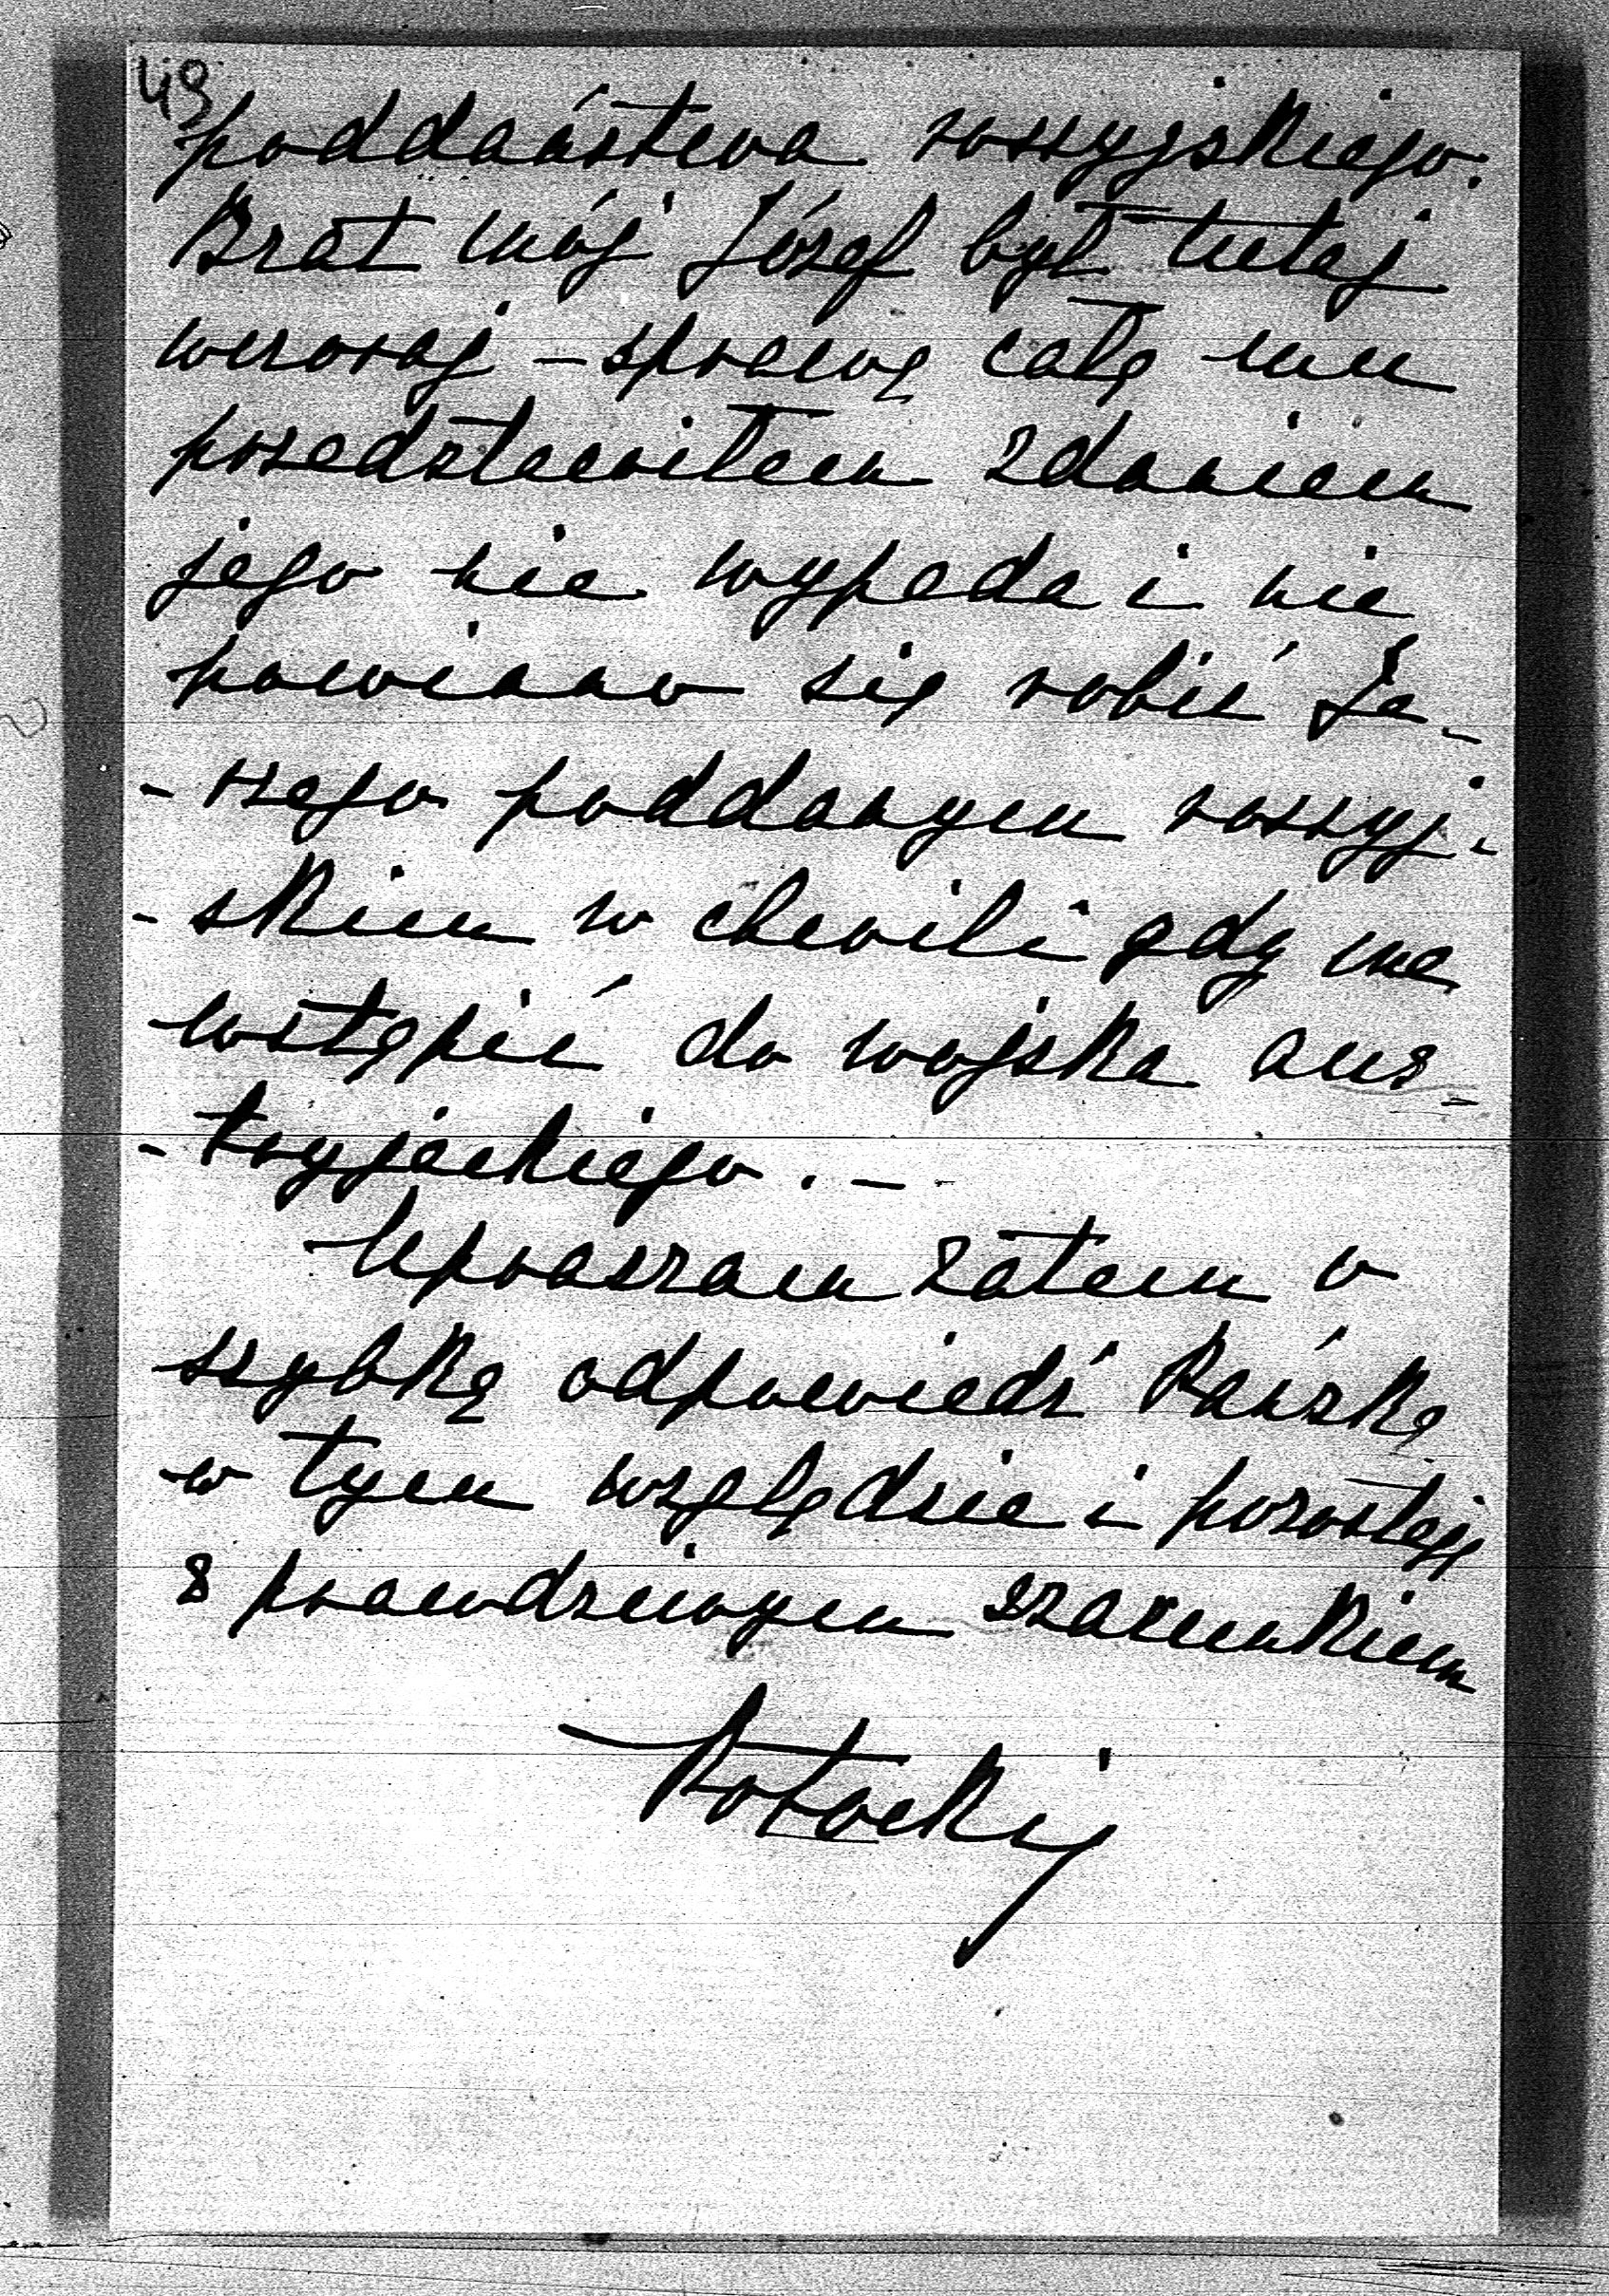 49
poddaństwa rossyjskiego.
Brat mój Józef był tutaj
wczoraj – sprawę całą mu
przedstawiłem zdaniem
jego nie wypada i nie
powinno się robić Je-
-rzego poddanym rossyj-
-skim w chwili gdy ma
wstąpić do wojska aus-
-tryjackiego. –
Upraszam zatem o
szybką odpowiedź Pańską
w tym względzie i pozostaję
z prawdziwym szacunkiem
RPotocki